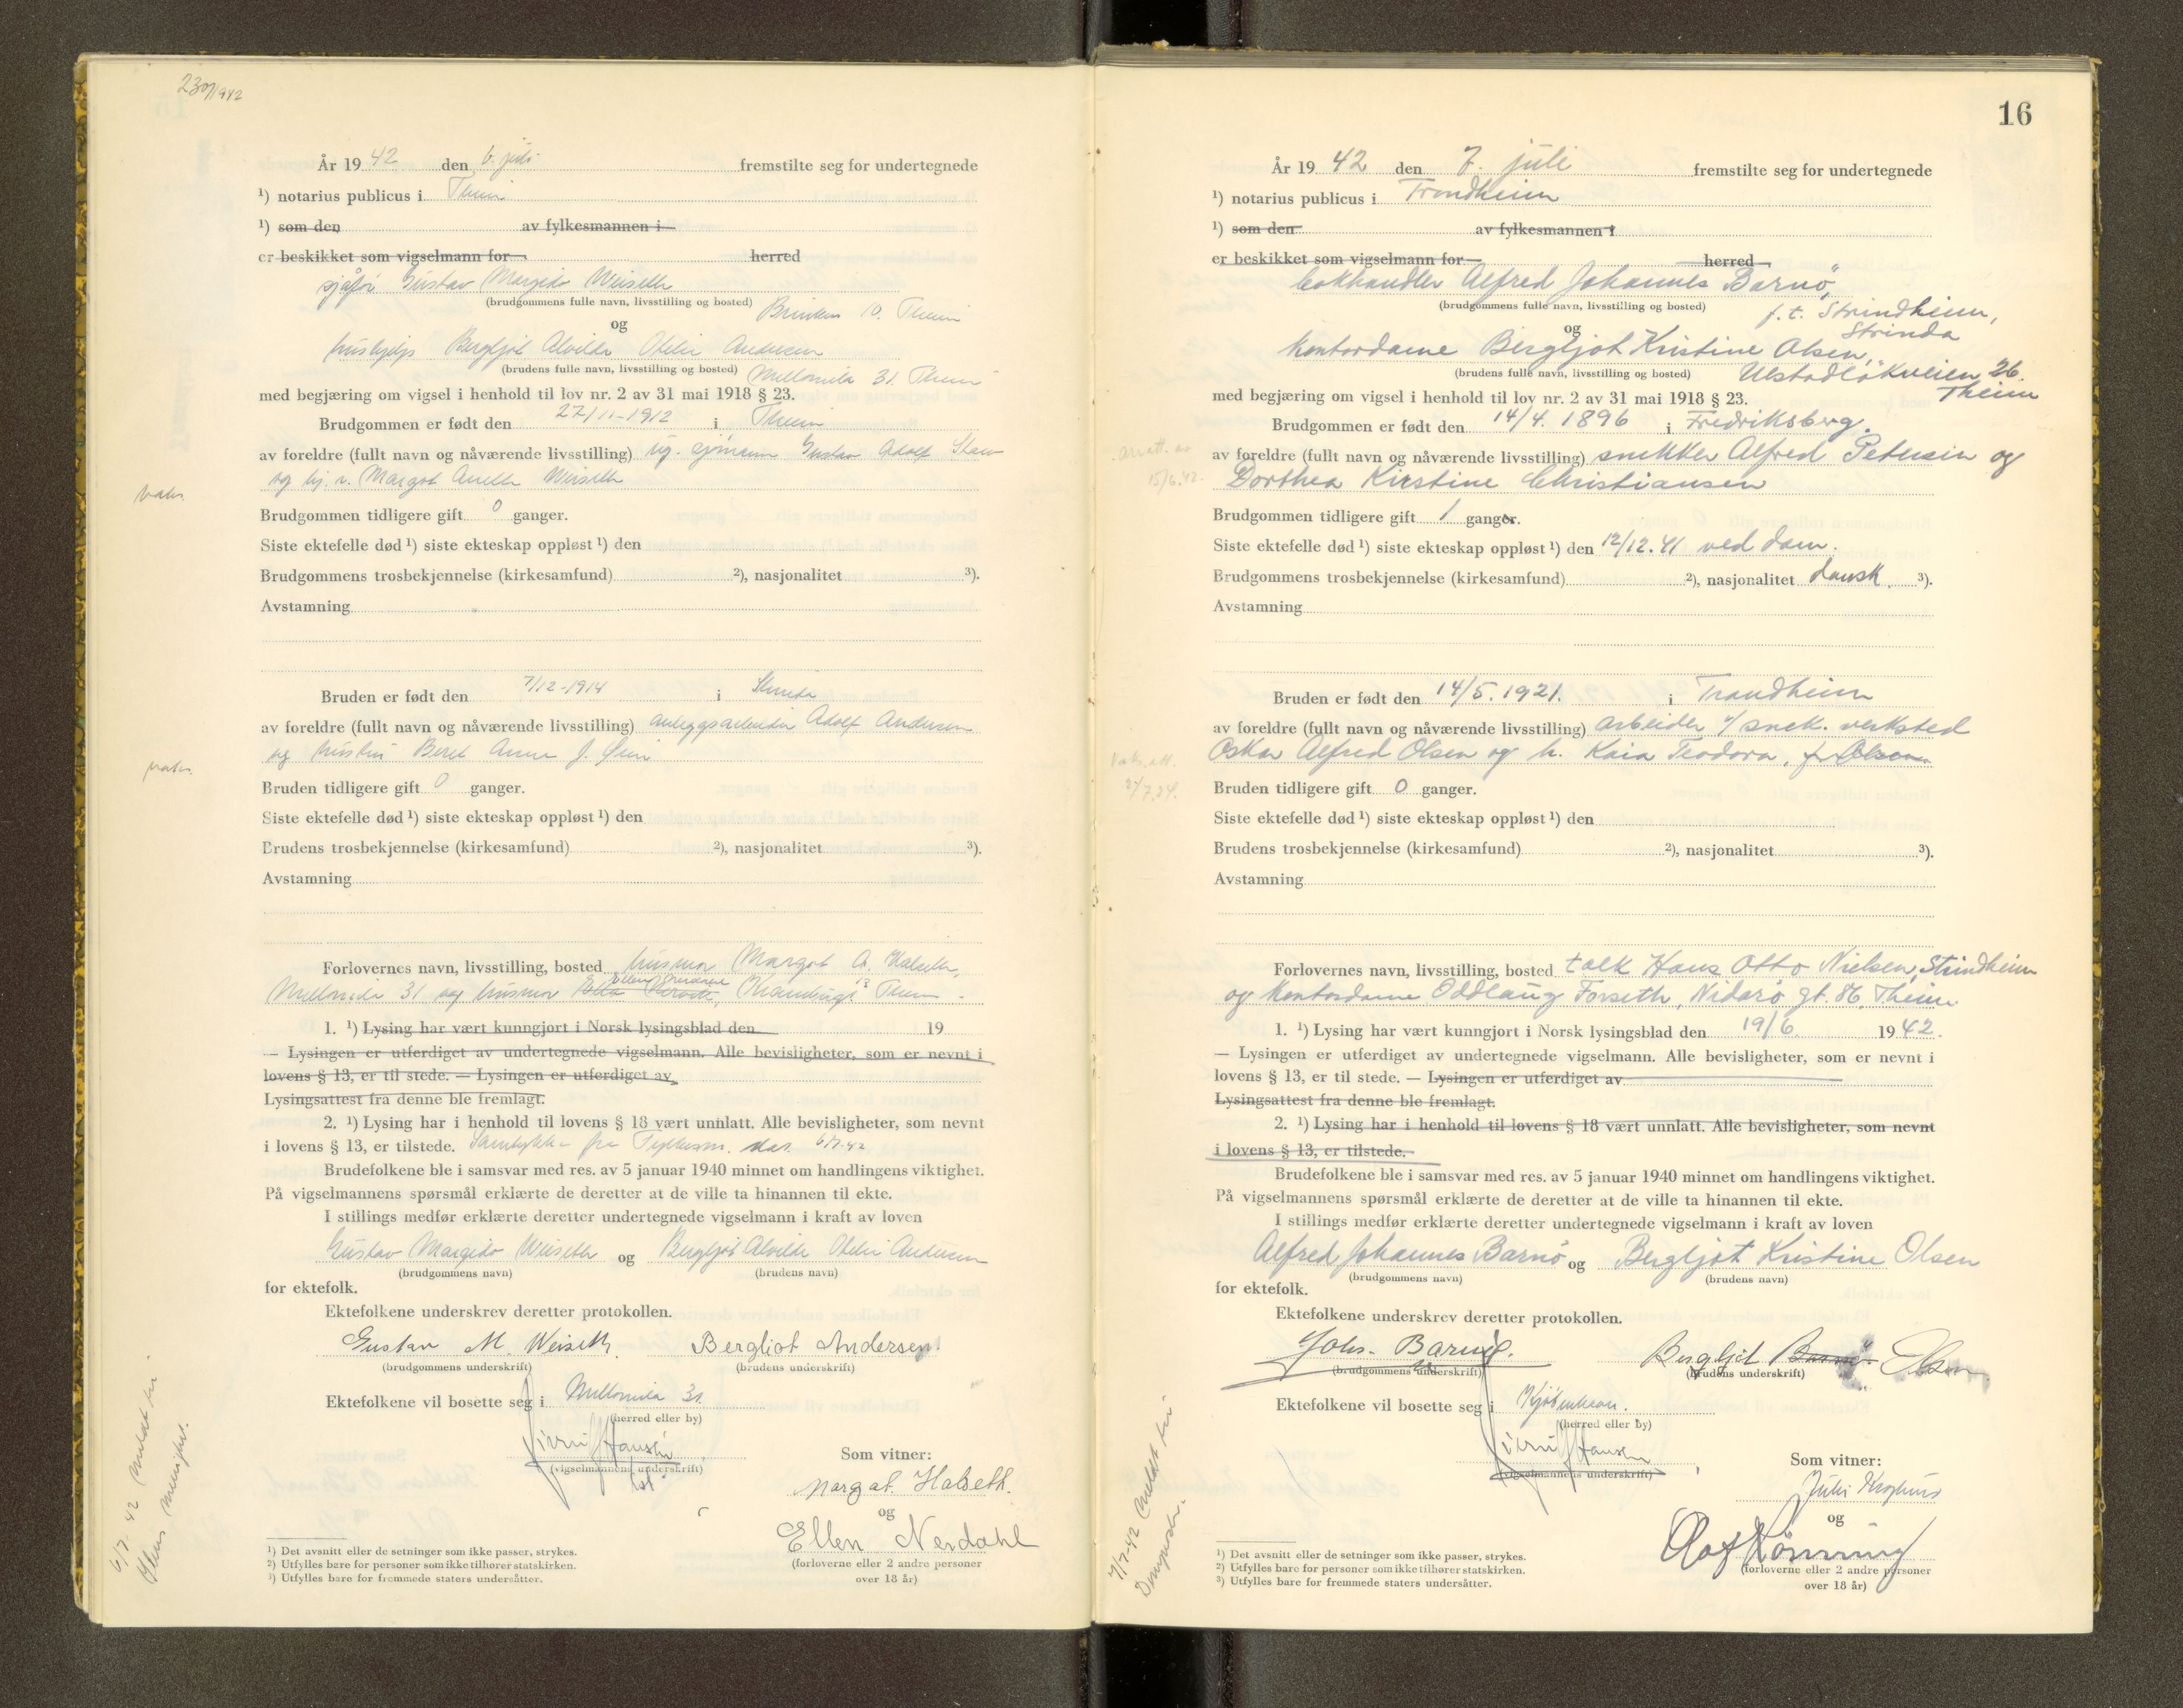 230/1942
År 1942 den 6. juli fremstilte seg for undertegnede
¹) notarius publicus i Theim
¹) som den av fylkesmannen i
er beskikket som vigselmann for herred
sjåfør Gustav Margido Weiseth
(brudgommens fulle navn, livsstilling og bosted) Brinken 10. Theim
og
hushjelp Bergljot Alvilde Otelie Andersen
(brudens fulle navn, livsstilling og bosted) Mellomila 31. Theim
med begjæring om vigsel i henhold til lov nr. 2 av 31 mai 1918 § 23.
Brudgommen er født den 27/11-1912 i Theim
av foreldre (fullt navn og nåværende livsstilling) ug. sjømann Gustav Adolf
og Margot Anette Weiseth
Brudgommen tidligere gift 0 ganger.
Siste ektefelle død ¹) siste ekteskap oppløst ¹) den
Brudgommens trosbekjennelse (kirkesamfund) ²), nasjonalitet ³).
Avstamning
Bruden er født den 7/12-1914 i Strinda
av foreldre (fullt navn og nåværende livsstilling) anleggsarbeider Adolf Andersen
og hustru Beret Anna
Bruden tidligere gift 0 ganger.
Siste ektefelle død ¹) siste ekteskap oppløst ¹) den
Brudens trosbekjennelse (kirkesamfund) ²), nasjonalitet ³).
Avstamning
Forlovernes navn, livsstilling, bosted husmor Margot A. Halseth,
Mellomila 31 og husmor Theim
1. ¹) Lysing har vært kunngjort i Norsk lysingsblad den 19
— Lysingen er utferdiget av undertegnede vigselmann. Alle bevisligheter, som er nevnt i
lovens § 13, er til stede. — Lysingen er utferdiget av
Lysingsattest fra denne ble fremlagt.
2. ¹) Lysing har i henhold til lovens § 18 vært unnlatt. Alle bevisligheter, som nevnt
i lovens § 13, er tilstede. Samtykke fra Fylkesm. dat. 6/7-42
Brudefolkene ble i samsvar med res. av 5 januar 1940 minnet om handlingens viktighet.
På vigselmannens spørsmål erklærte de deretter at de ville ta hinannen til ekte.
I stillings medfør erklærte deretter undertegnede vigselmann i kraft av loven
Gustav Margido Weiseth og Bergljot Alvilde Otelie Andersen
(brudgommens navn) (brudens navn)
for ektefolk.
Ektefolkene underskrev deretter protokollen.
Gustav M. Weiseth. Bergliot Andersen.
(brudgommens underskrift) (brudens underskrift)
Ektefolkene vil bosette seg i Mellomila 31.
(herred eller by)
Hansen
(vigselmannens underskrift)
Som vitner:
Margot Halseth.
og
Ellen Nerdahl
(forloverne eller 2 andre personer
over 18 år)
¹) Det avsnitt eller de setninger som ikke passer, strykes.
²) Utfylles bare for personer som ikke tilhører statskirken.
³) Utfylles bare for fremmede staters undersåtter.
6/7-42 meldt til
menighet.
16
År 1942 den 7. juli fremstilte seg for undertegnede
¹) notarius publicus i Trondheim
¹) som den av fylkesmannen i
er beskikket som vigselmann for herred
Bokhandler Alfred Johannes Barnö,
(brudgommens fulle navn, livsstilling og bosted) f. t. Strindheim,
og Strinda
Kontordame Bergljot Kristine Olsen,
(brudens fulle navn, livsstilling og bosted) Ulstadløkveien 26.
med begjæring om vigsel i henhold til lov nr. 2 av 31 mai 1918 § 23. Theim
Brudgommen er født den 14/4. 1896 i Fredriksberg.
av foreldre (fullt navn og nåværende livsstilling) snekker Alfred Petersen og
Dorthea Kirstine Christiansen
15/6.42.
Brudgommen tidligere gift 1 ganger.
Siste ektefelle død ¹) siste ekteskap oppløst ¹) den 12/12.41 ved dom.
Brudgommens trosbekjennelse (kirkesamfund) ²), nasjonalitet dansk. ³).
Avstamning
Bruden er født den 14/5. 1921. i Trondheim
av foreldre (fullt navn og nåværende livsstilling) arbeider v/ snek. verksted
Oskar Alfred Olsen og h. Kaia Teodora, f. Olsen
Bruden tidligere gift 0 ganger.
Siste ektefelle død ¹) siste ekteskap oppløst ¹) den
Brudens trosbekjennelse (kirkesamfund) ²), nasjonalitet ³).
Avstamning
Forlovernes navn, livsstilling, bosted tolk Hans Otto Nielsen, Strindheim
og Kontordame Oddlaug Forseth, Nidarö gt. 86, Theim.
1. ¹) Lysing har vært kunngjort i Norsk lysingsblad den 19/6. 1942.
— Lysingen er utferdiget av undertegnede vigselmann. Alle bevisligheter, som er nevnt i
lovens § 13, er til stede. — Lysingen er utferdiget av
Lysingsattest fra denne ble fremlagt.
2. ¹) Lysing har i henhold til lovens § 18 vært unnlatt. Alle bevisligheter, som nevnt
i lovens § 13, er tilstede.
Brudefolkene ble i samsvar med res. av 5 januar 1940 minnet om handlingens viktighet.
På vigselmannens spørsmål erklærte de deretter at de ville ta hinannen til ekte.
I stillings medfør erklærte deretter undertegnede vigselmann i kraft av loven
Alfred Johannes Barnö og Bergljot Kristine Olsen
(brudgommens navn) (brudens navn)
for ektefolk.
Ektefolkene underskrev deretter protokollen.
Johs. Barnö. Bergljot Barnö Olsen.
(brudgommens underskrift) (brudens underskrift)
Ektefolkene vil bosette seg i Kjöbenhavn.
(herred eller by)
Hansen
(vigselmannens underskrift)
Som vitner:
og
Olaf Rönning
(forloverne eller 2 andre personer
over 18 år)
¹) Det avsnitt eller de setninger som ikke passer, strykes.
²) Utfylles bare for personer som ikke tilhører statskirken.
³) Utfylles bare for fremmede staters undersåtter.
7/7-42 meldt til